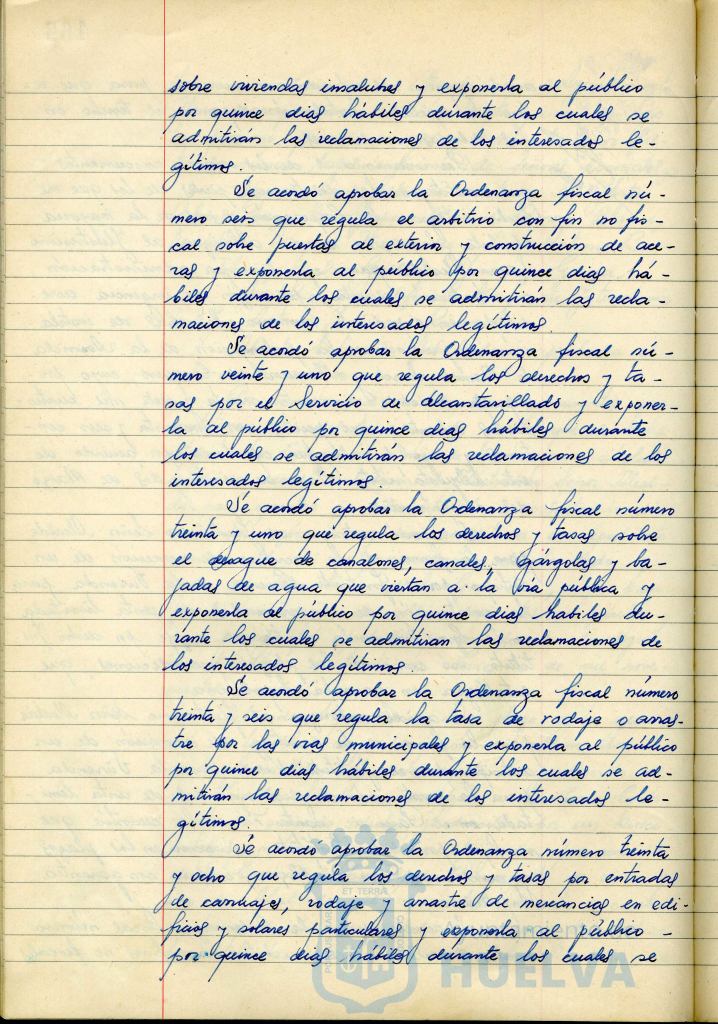 sobre viviendas insalubres y exponerla al público
por quince dias hábiles durante los cuales se
admitirán las reclamaciones de los interesados le-
gítimos.
Se acordó aprobar la Ordenanza fiscal nú-
mero seis que regula el arbitrio con fin no fis-
cal sobre puertas al exterior y construcción de ace-
ras y exponerla al público por quince dias há-
biles durante los cuales se admitirán las recla-
maciones de los interesados legítimos.
Se acordó aprobar la Ordenanza fiscal nú-
mero veinte y uno que regula los derechos y ta-
sas por el Servicio de Alcantarillado y exponer-
la al público por quince dias hábiles durante
los cuales se admitirán las reclamaciones de los
interesados legítimos.
Se acordó aprobar la Ordenanza fiscal número
treinta y uno que regula los derechos y tasas sobre
el desague de canalones, canales, gárgolas y ba-
jadas de agua que viertan a la vía pública y
exponerla al público por quince dias habiles du-
rante los cuales se admitiran las reclamaciones de
los interesados legítimos.
Se acordó aprobar la Ordenanza fiscal número
treinta y seis que regula la tasa de rodaje o arras-
tre por las vias municipales y exponerla al público
por quince dias hábiles durante los cuales se ad-
mitirán las reclamaciones de los interesados le-
gítimos.
Se acordó aprobar la Ordenanza número treinta
y ocho que regula los derechos y tasas por entradas
de carruajes, rodaje y arrastre de mercancias en edi-
ficios y solares particulares y exponerla al público -
por quince dias hábiles durante los cuales se
HUELVA